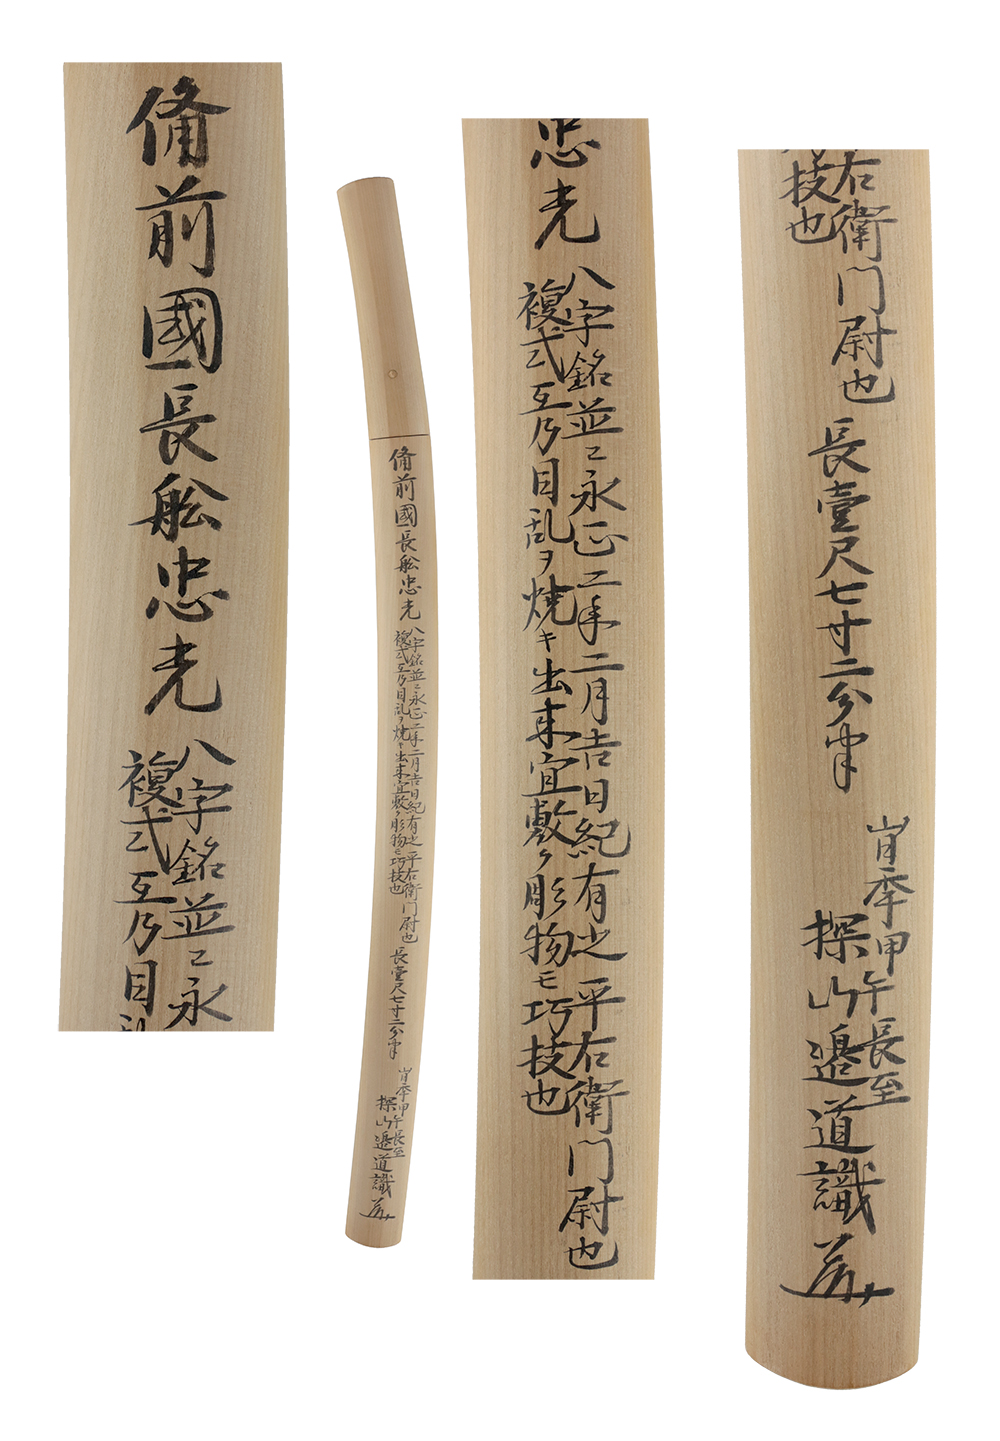 備前國長舩忠光
八字銘並ニ永
複式互乃目乱
備前國長舩忠光
八字銘並ニ永正二年二月吉日紀有之 平右衛門尉也
複式互乃目乱ヲ焼キ出来宜敷ク彫物モ巧技也
長壹尺七寸二分半
旹季甲午長至
探山邉道識
忠光
八字銘並ニ永正二年二月吉日紀有之 平右衛門尉也
複式互乃目乱ヲ焼キ出来宜敷ク彫物モ巧技也
右衛門尉也
技也
長壹尺七寸二分半
旹季甲午長至
探山邉道識